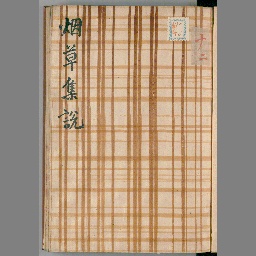 烟草集說